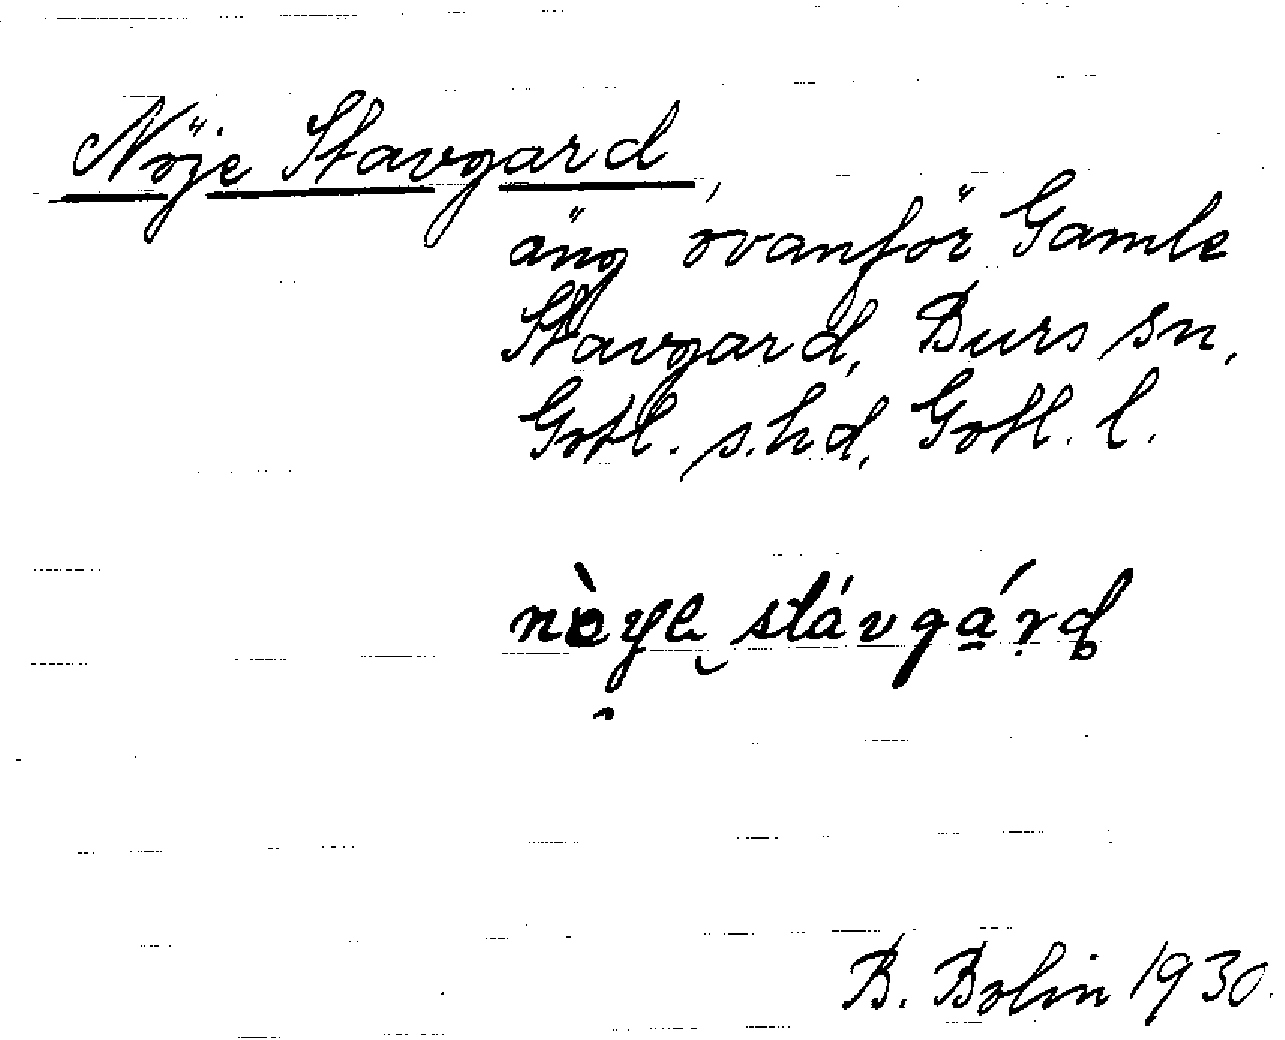 Nöje Stavgard,
äng ovanför Gamle
Stavgard, Burs sn,
Gotl. s. hd, Gotl. l.
stávgárd
B. Bolin 1930.